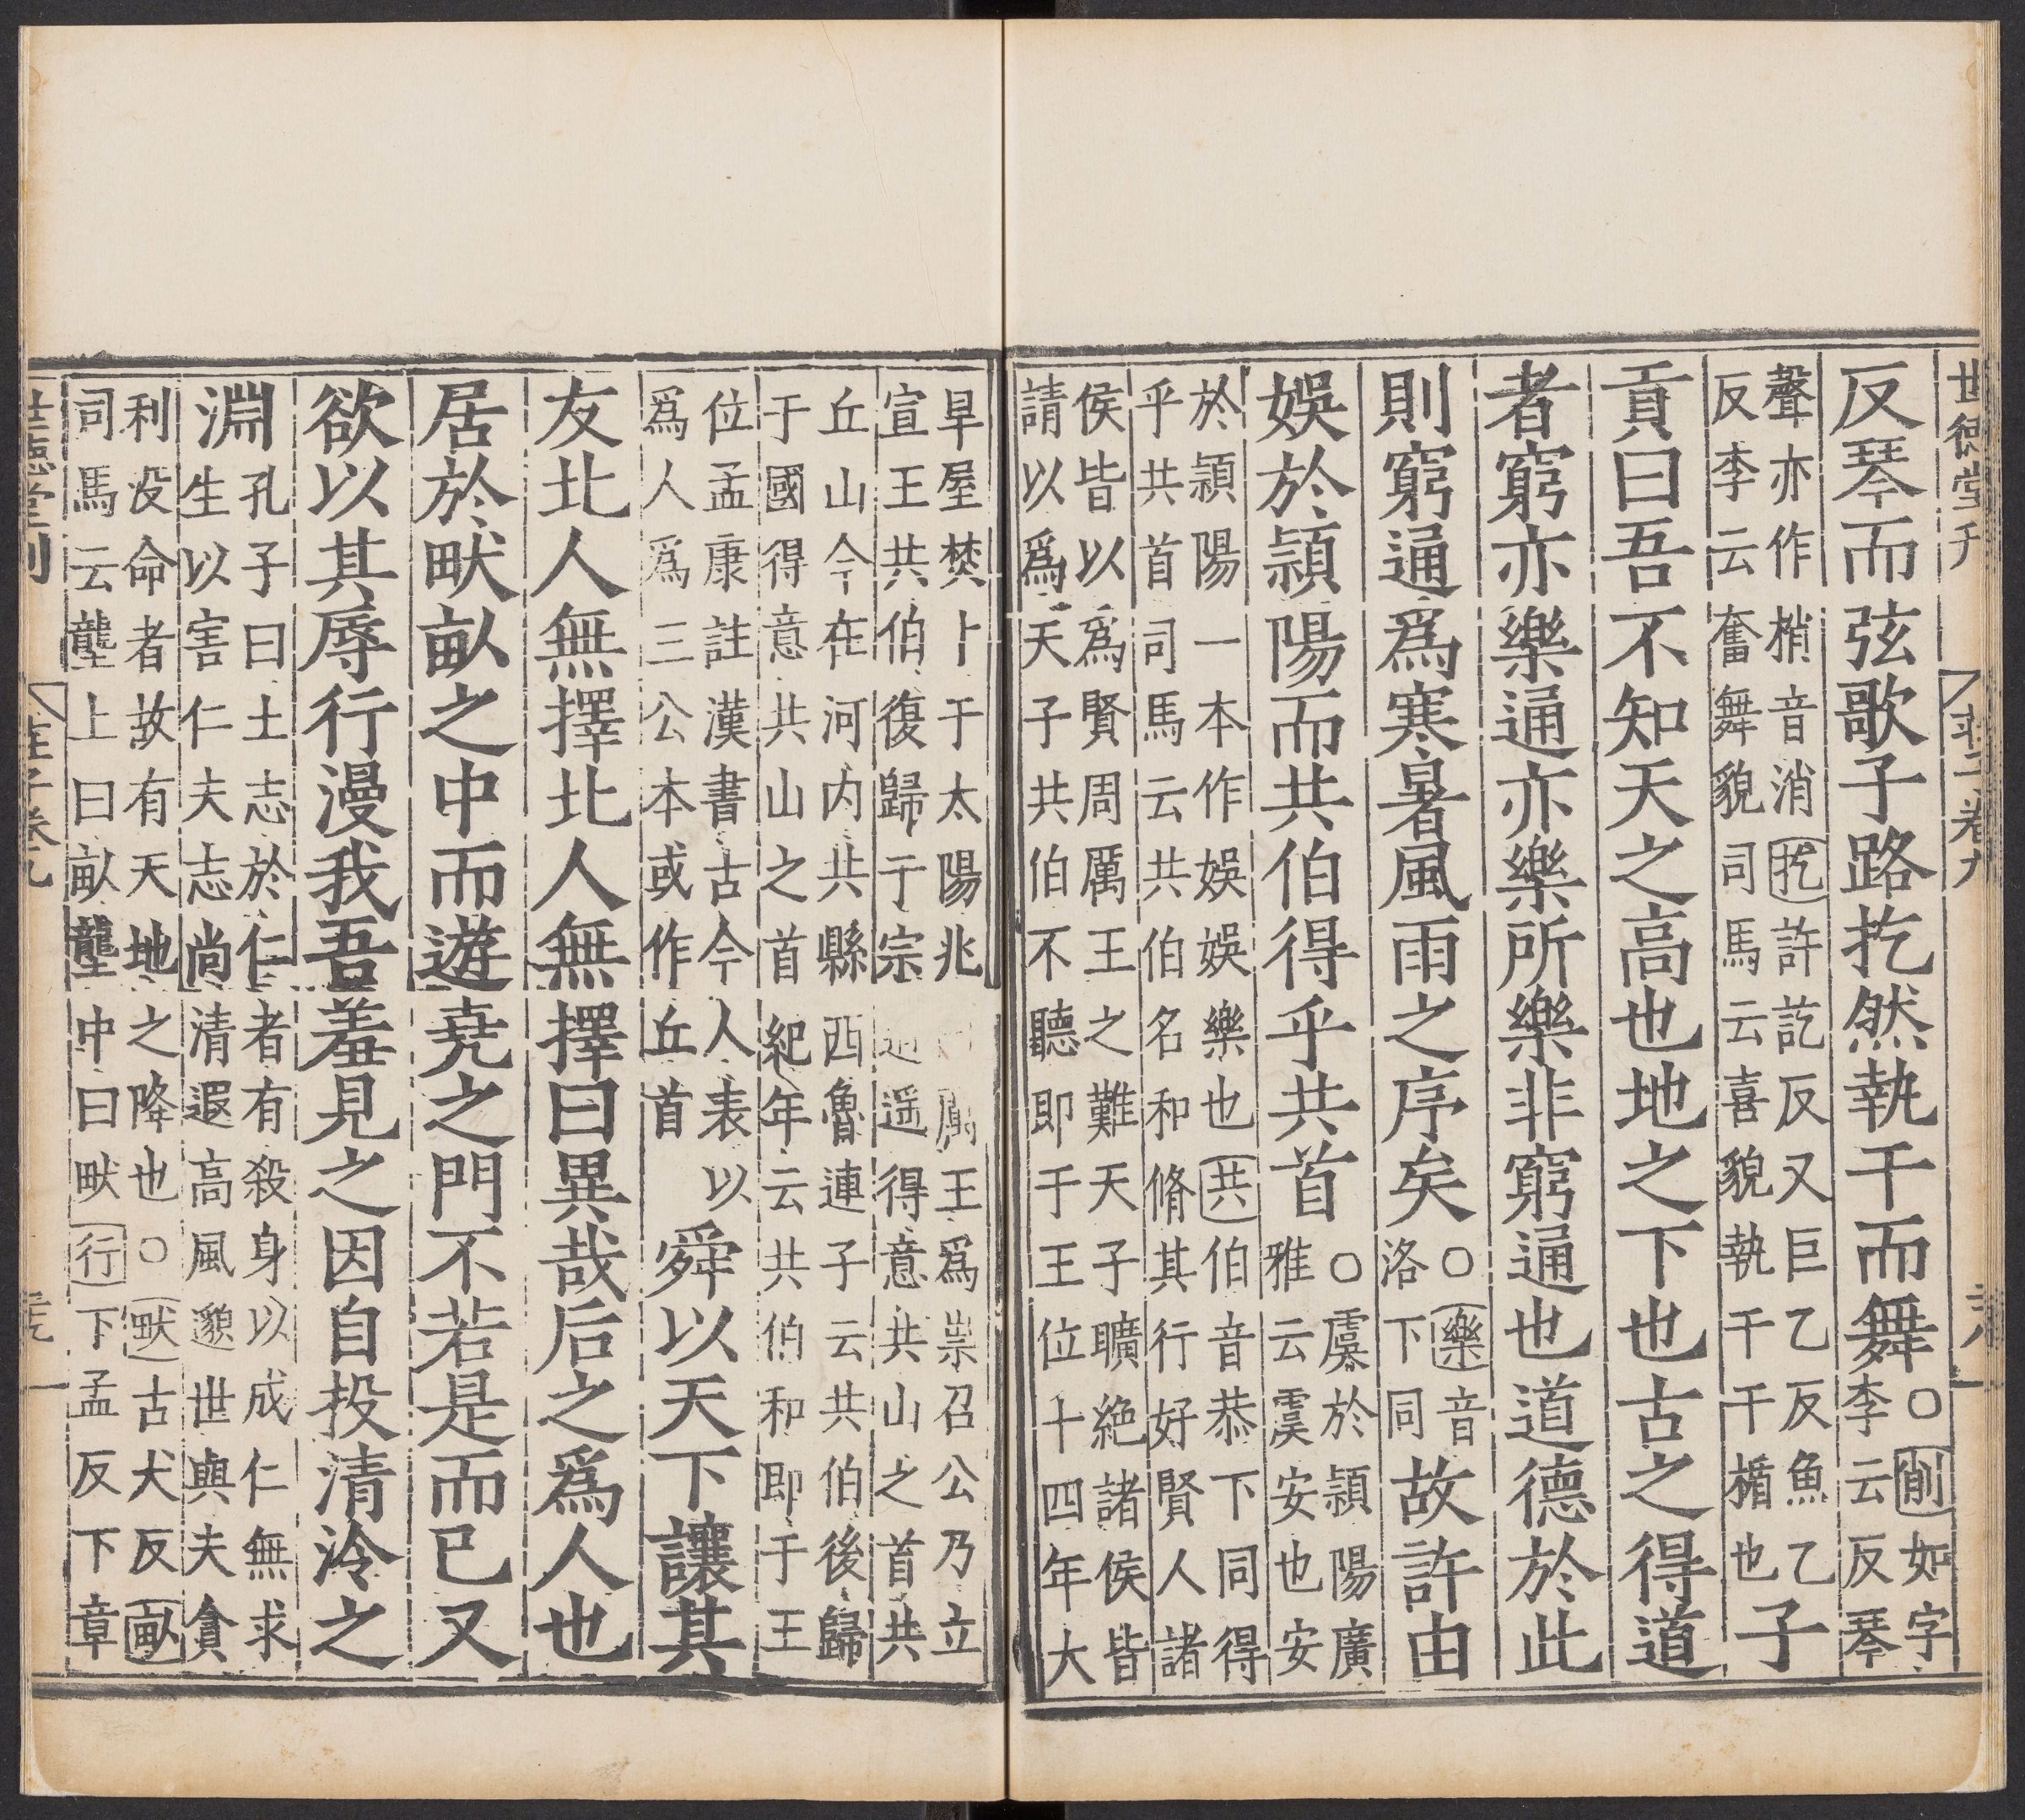 世德堂刊
莊子卷九
反琴而弦歌子路扢然執干而舞○削如字
李云反琴
聲亦作梢音消扢許訖反又巨乙反魚乙
反李云奮舞貌司馬云喜貌執干干楯也子
貢曰吾不知天之高也地之下也古之得道
者窮亦樂通亦樂所樂非窮通也道德於此
則窮通爲寒暑風雨之序矣○樂音
洛下同故許由
娛於潁陽而共伯得乎共首○虞於潁陽廣
雅云虞安也安
於潁陽一本作娛娛樂也共伯音恭下同得
乎共首司馬云共伯名和脩其行好賢人諸
侯皆以爲賢周厲王之難天子曠絶諸侯皆
請以爲天子共伯不聽即于王位十四年大
旱屋焚卜于太陽兆曰厲王爲祟召公乃立
宣王共伯復歸于宗逍遥得意共山之首共
丘山今在河内共縣西魯連子云共伯後歸
于國得意共山之首紀年云共伯和即于王
位孟康註漢書古今人表以
爲人爲三公本或作丘首舜以天下讓其
友北人無擇北人無擇曰異哉后之爲人也
居於畎畝之中而遊堯之門不若是而已又
欲以其辱行漫我吾羞見之因自投清泠之
淵孔子曰士志於仁者有殺身以成仁無求
生以害仁夫志尚清遐高風邈世與夫貪
利没命者故有天地之降也○畎古犬反畝
司馬云壟上曰畝壟中曰畎行下孟反下章
世德堂刊
莊子卷九